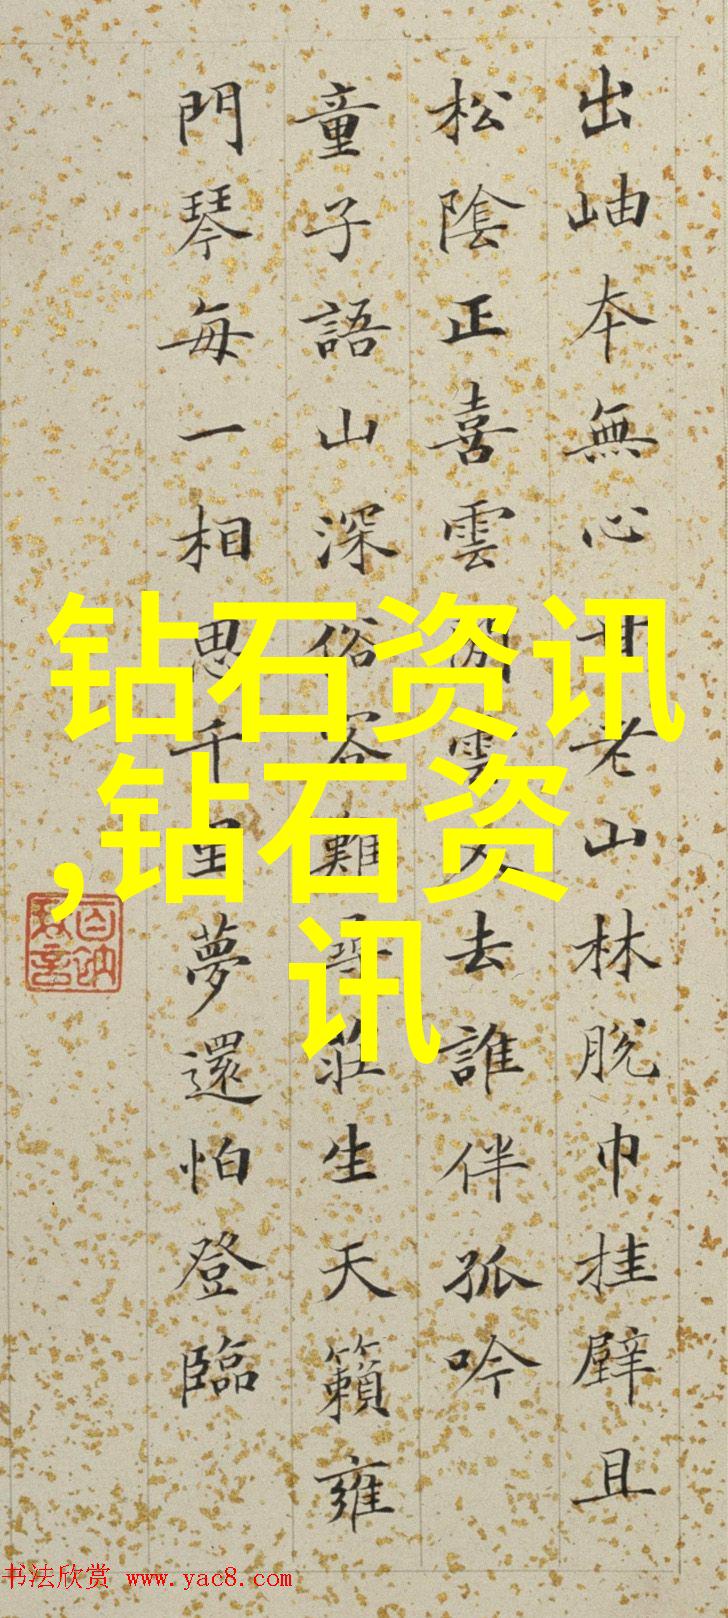 出岫本無心甘老山林脫巾挂壁且
松陰正喜雲閒雲又去誰伴孤吟
童子語山深俗客難尋莊生天籟雍
門琴每一相思千里夢還怕登臨
钻石资讯
,钻石资
讯
书法欣赏 www.yac8.com